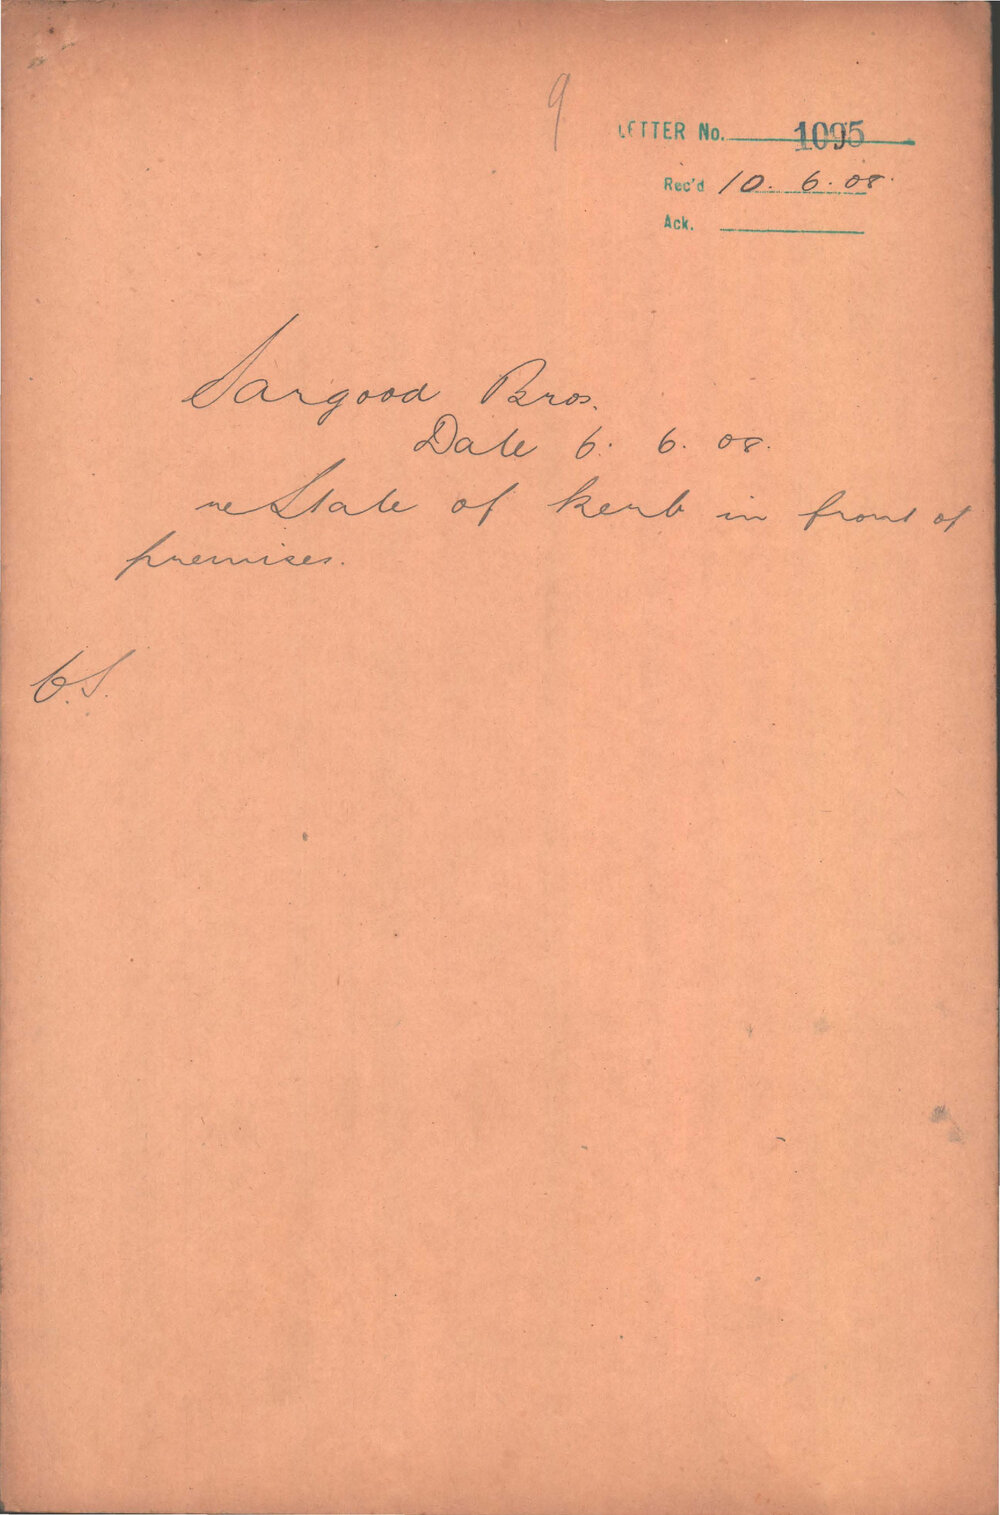 9
LETTER No. 1095
Rec'd 10. 6. 08.
Ack.
Sargood Bros.
Date 6. 6. 08.
re State of kerb in front of
premises.
C.S.